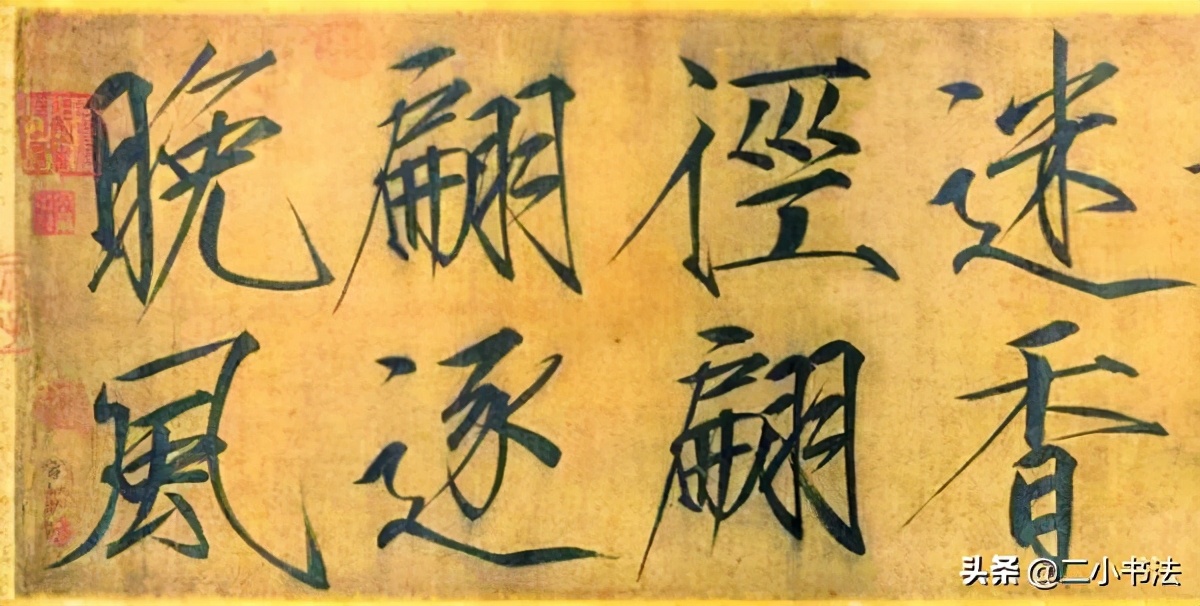 迷香
徑翩
翩逐
晚風
头条 @二小书法